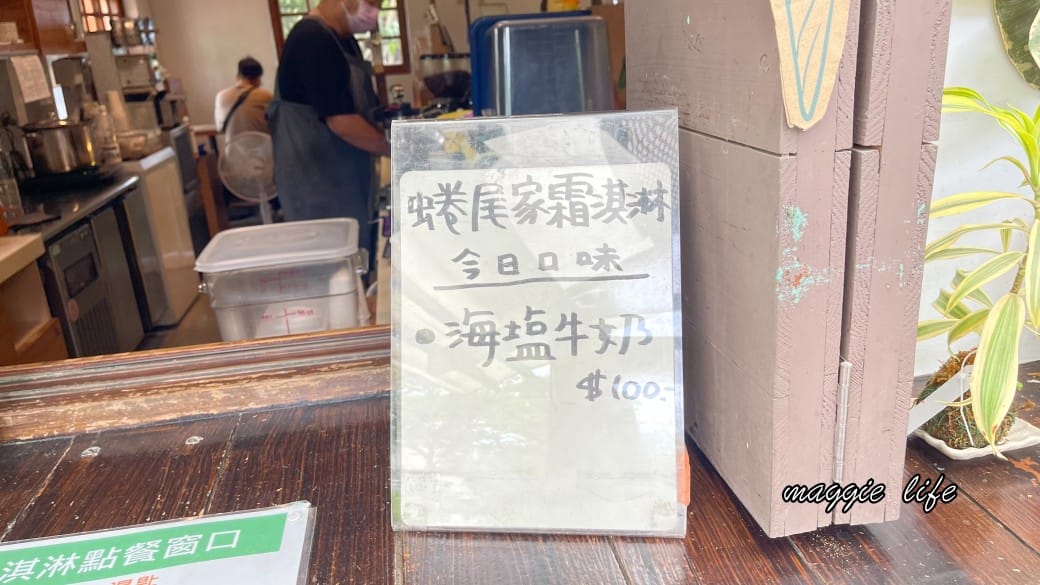 蜷尾家霜淇淋
今日口味
• 海塩牛奶
$100.-
maggie life
淇淋點餐窗口